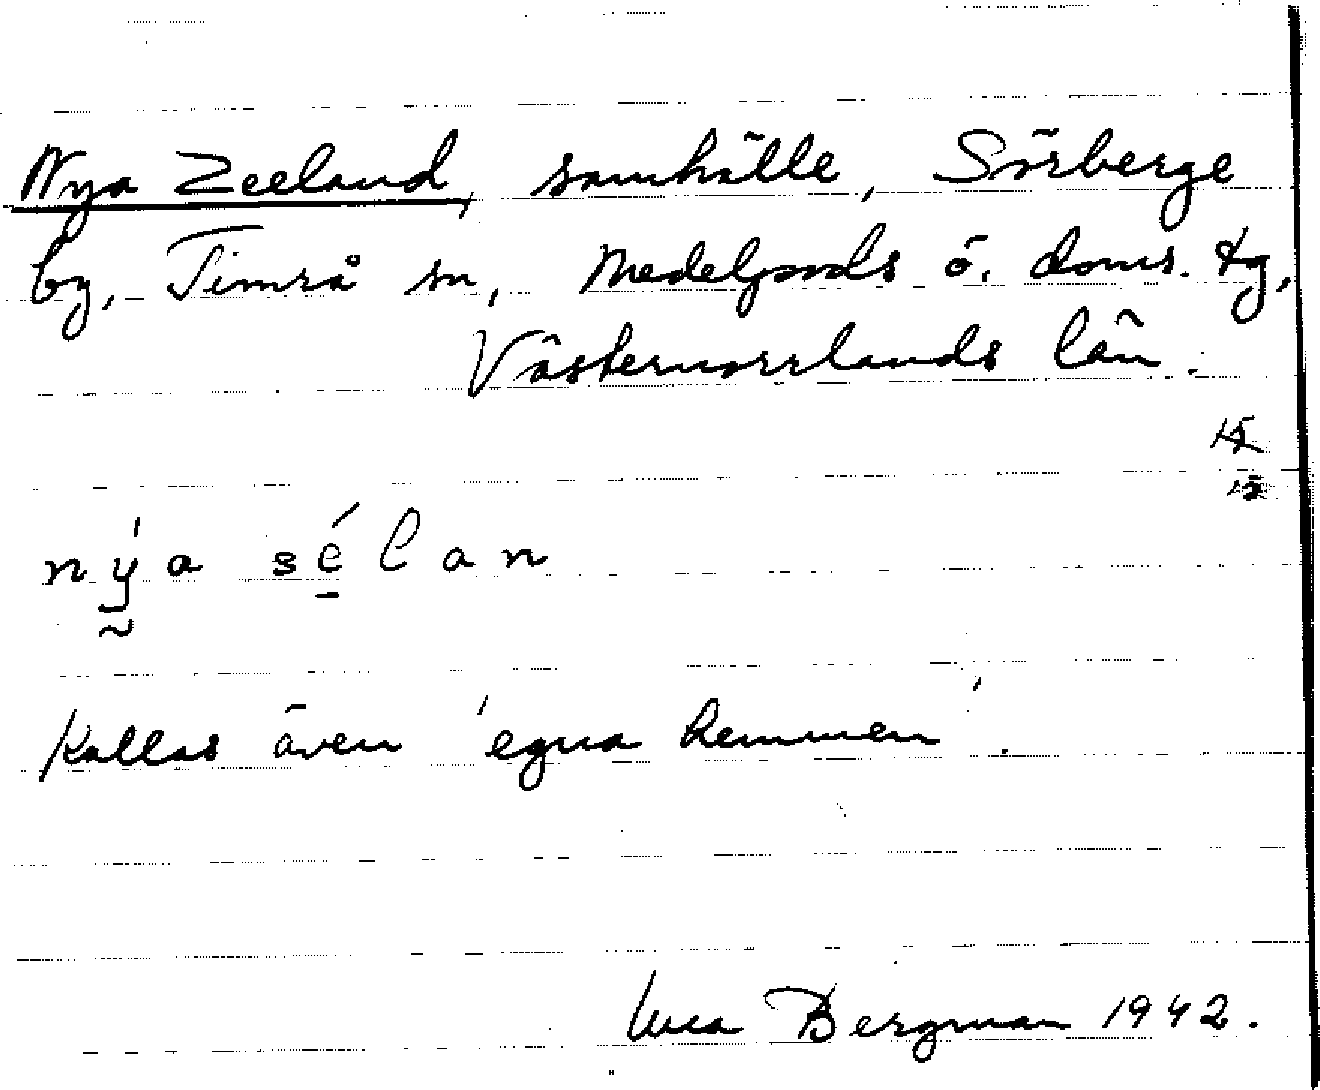 Nya Zeeland, samhälle, Sörberge
by, Timrå sn, Medelpads ö. doms. tg,
Västernorrlands län.
nýa sélan
Kallas även 'egna hemmen'.
Bergman 1942.